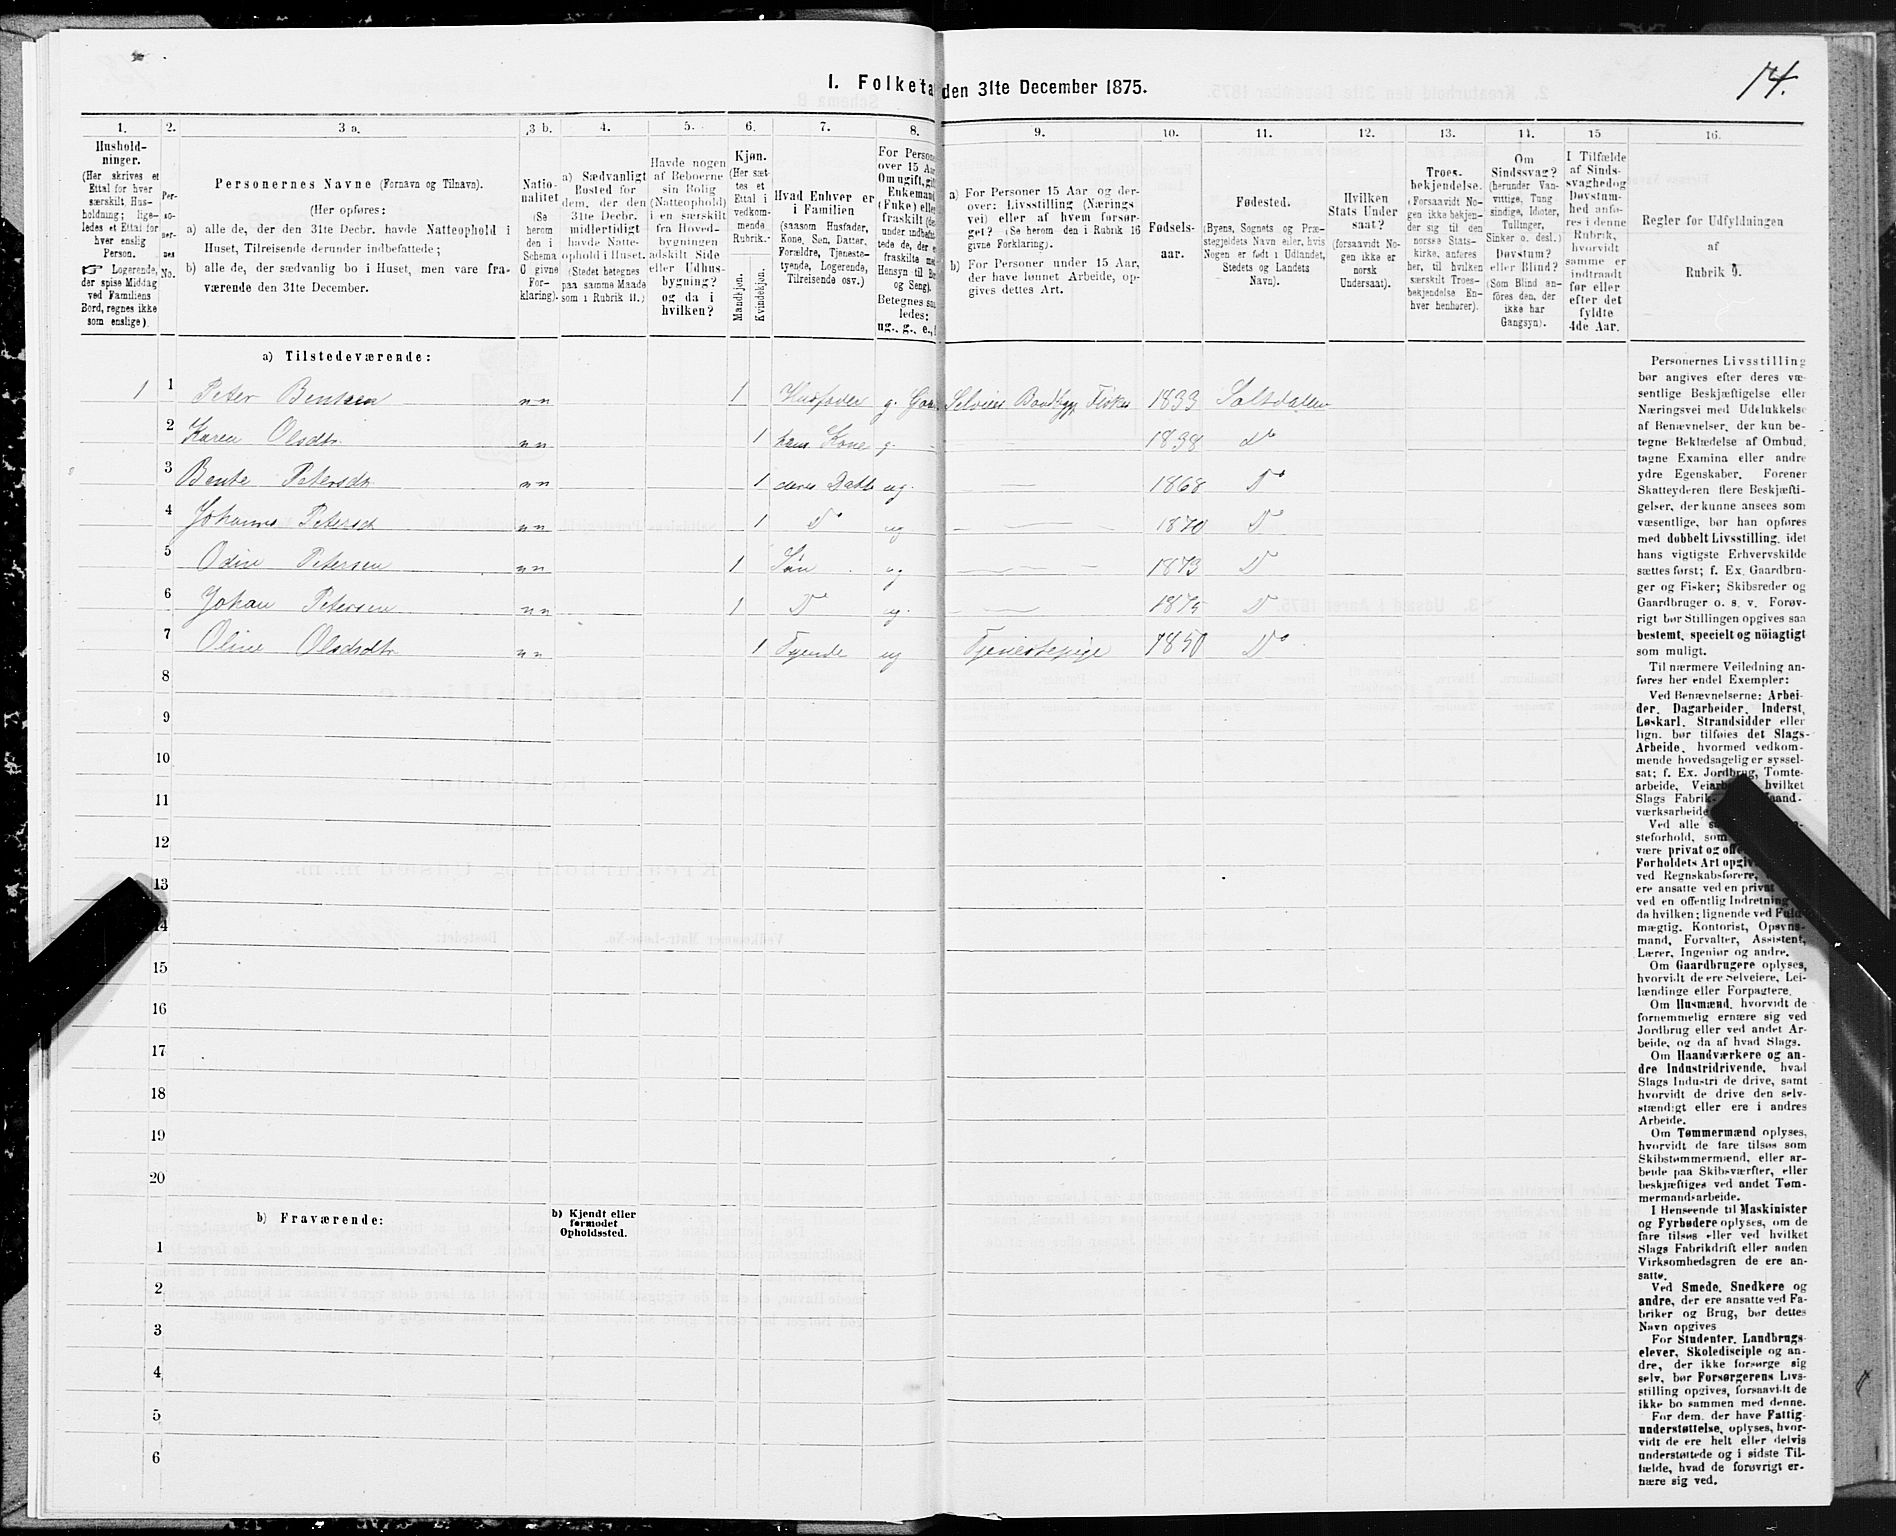 14.
I. Folketa den 31te December 1875.
1. 2. 3 a. 3 b. 4. 5. 6. 7. 8. 9. 10. 11. 12. 13. 14. 15 16.
Hushold-
ninger.
(Her skrives et
Ettal for hver
særskilt Hus-
holdning; lige-
ledes et Ettal for
hver enslig
Person.
☞ Logerende,
der spise Middag
ved Familiens
Bord, regnes ikke
som enslige).
Per-
so-
ner-
nes
No.
Personernes Navne (Fornavn og Tilnavn).
(Her opføres:
a) alle de, der den 31te Decbr. havde Natteophold i
Huset, Tilreisende derunder indbefattede;
b) alle de, der sædvanlig bo i Huset, men vare fra-
værende den 31te December.
Natio-
nalitet
(Se
herom
den i
Schema
O givne
For-
klaring).
a) Sædvanligt
Bosted for
dem, der den
31te Decbr.
midlertidigt
havde Natte-
ophold i Huset.
(Stedet betegnes
paa samme Maade
som i Rubrik 11.)
Havde nogen
af Beboerne
sin Bolig
(Natteophold)
i en særskilt
fra Hoved-
bygningen
adskilt Side
eller Udhus-
bygning?
og da i
hvilken?
Kjøn.
(Her sæt-
tes et
Ettal i
vedkom-
mende
Rubrik.
Mandkjøn.
Kvindekjøn.
Hvad Enhver er
i Familien
(saasom Husfader,
Kone, Søn, Datter,
Forældre, Tjeneste-
tyende, Logerende,
Tilreisende osv.)
For Persone
over 15 Aar
Om ugift, gift
Enkemand
(Enke) elle
fraskilt (de
under indbefat
tede de, der e
fraskilte me
Hensyn til Bo
og Seng).
Betegnes saa
ledes:
ug., g., e.,
a) For Personer 15 Aar og der-
over: Livsstilling (Nærings
vei) eller af hvem forsør-
get? (Se herom den i Rubrik 16
givne Forklaring).
b) For Personer under 15 Aar,
der have lønnet Arbeide, op-
gives dettes Art.
Fødsels-
aar.
Fødested.
(Byens, Sognets og Præ-
stegjeldets Navn eller, hvis
Nogen er født i Udlandet,
Stedets og Landets
Navn).
Hvilken
Stats Under
saat?
(forsaavidt No-
gen ikke er
norsk
Undersaat).
Troes-
bekjendelse.
(Forsaavidt No-
gen ikke bekjen-
der sig til den
norske Stats-
kirke, anføres
her, til hvilken
særskilt Troes-
bekjendelse En-
hver henhører).
Om
Sindssvag?
(herunder Van-
vittige, Tung
sindige, Idioter,
Tullinger,
Sinker o. desl.)
Døvstum?
eller Blind?
(Som Blind an-
føres den, der
ikke har
Gangsyn).
I Tilfælde
af Sinds-
svaghed og
Døvstum-
hed anfø-
res i denne
Rubrik,
hvorvidt
samme er
indtraadt
før eller
efter det
fyldte
4de Aar.
Regler for Udfyldningen
af
Rubrik 9.
a) Tilstedeværende:
1 1 Peter Bentsen n n 1 Husfader g. Selveier Fisker 1833 Saltdalen
2 Karen Olsdtr n n 1 hans Kone g 1838 do
3 Bente Petersdr n n 1 deres Datt ug. 1868 Do
4 Johanna Petersd n n 1 Do ug 1870 D
5 Odin Petersen n n 1 Søn ug 1873 D
6 Johan Petersen n n 1 D ug. 1875 D
7 Oline Olsdtr n n 1 Tyende ug Tjenestepige 1850 Do
8
9
10
11
12
13
14
15
16
17
18
19
20
b) Fraværende:
b) Kjendt eller
formodet
Opholdssted.
1
2
3
4
5
6
Personernes Livsstilling
bør angives efter deres væ-
sentlige Beskjæftigelse eller
Næringsvei med Udelukkelse
af Benævnelser, der kun be-
tegne Beklædelse af Ombud,
tagne Examina eller andre
ydre Egenskaber. Forener
Skatteyderen flere Beskjæfti-
gelser, der kunne ansees som
væsentlige, bør han opføres
med dobbelt Livsstilling, idet
hans vigtigste Erhvervskilde
sættes først; f. Ex. Gaardbru-
ger og Fisker; Skibsreder og
Gaardbruger o. s. v. Forøv-
rigt bør Stillingen opgives saa
bestemt, specielt og nöiagtigt
som muligt.
Til nærmere Veiledning an-
føres her endel Exempler:
Ved Benævnelserne: Arbei-
der, Dagarbeider, Inderst,
Løskarl, Strandsidder eller
lign. bør tilføies det Slags-
Arbeide, hvormed vedkom-
mende hovedsagelig er syssel-
sat; f. Ex. Jordbrug, Tomte-
arbeide, hvilket
Slags Fabrik- aand-
værksarbeide
Ved alle
steforhold, som
være privat og off
Forholdets Art opgiv
ved Regnskabsførere,
ere ansatte ved en privat
ved en offentlig Indretning
da hvilken; lignende ved Fuld-
mægtig, Kontorist, Opsyns-
mand, Forvalter, Assistent,
Lærer, Ingeniør og andre.
Om Gaardbrugere oplyses,
hvorvidt de ere Selveiere, Lei-
lændinge eller Forpagtere.
Om Husmænd, hvorvidt de
fornemmelig ernære sig ved
Jordbrug eller ved andet Ar-
beide, og da af hvad Slags.
Om Haandværkere og an-
dre Industridrivende, hvad
Slags Industri de drive, samt
hvorvidt de drive den selv-
stændigt eller ere i andres
Arbeide.
Om Tømmermænd oplyses,
hvorvidt de fare tilsøs som
Skibstømmermænd, eller ar-
beide paa Skibsværfter, eller
beskjæftiges ved andet Tøm-
mermandsarbeide.
I Henseende til Maskinister
og Fyrbødere oplyses, om de
fare tilsøs eller ved hvilket
Slags Fabrikdrift eller anden
Virksomhedsgren de ere an-
satte.
Ved Smede, Snedkere og
andre, der ere ansatte ved Fa-
briker og Brug, bør dettes
Navn opgives
For Studenter, Landbrugs-
elever, Skoledisciple og an-
dre, der ikke forsørge sig
selv, bør Forsørgerens Livs-
stilling opgives, forsaavidt de
ikke bo sammen med denne.
For dem, der have Fattig-
understøttelse, oplyses, hvor-
vidt de ere helt eller delvis
understøttede og i sidste Til-
fælde, hvad de forøvrigt er-
nære sig ved.